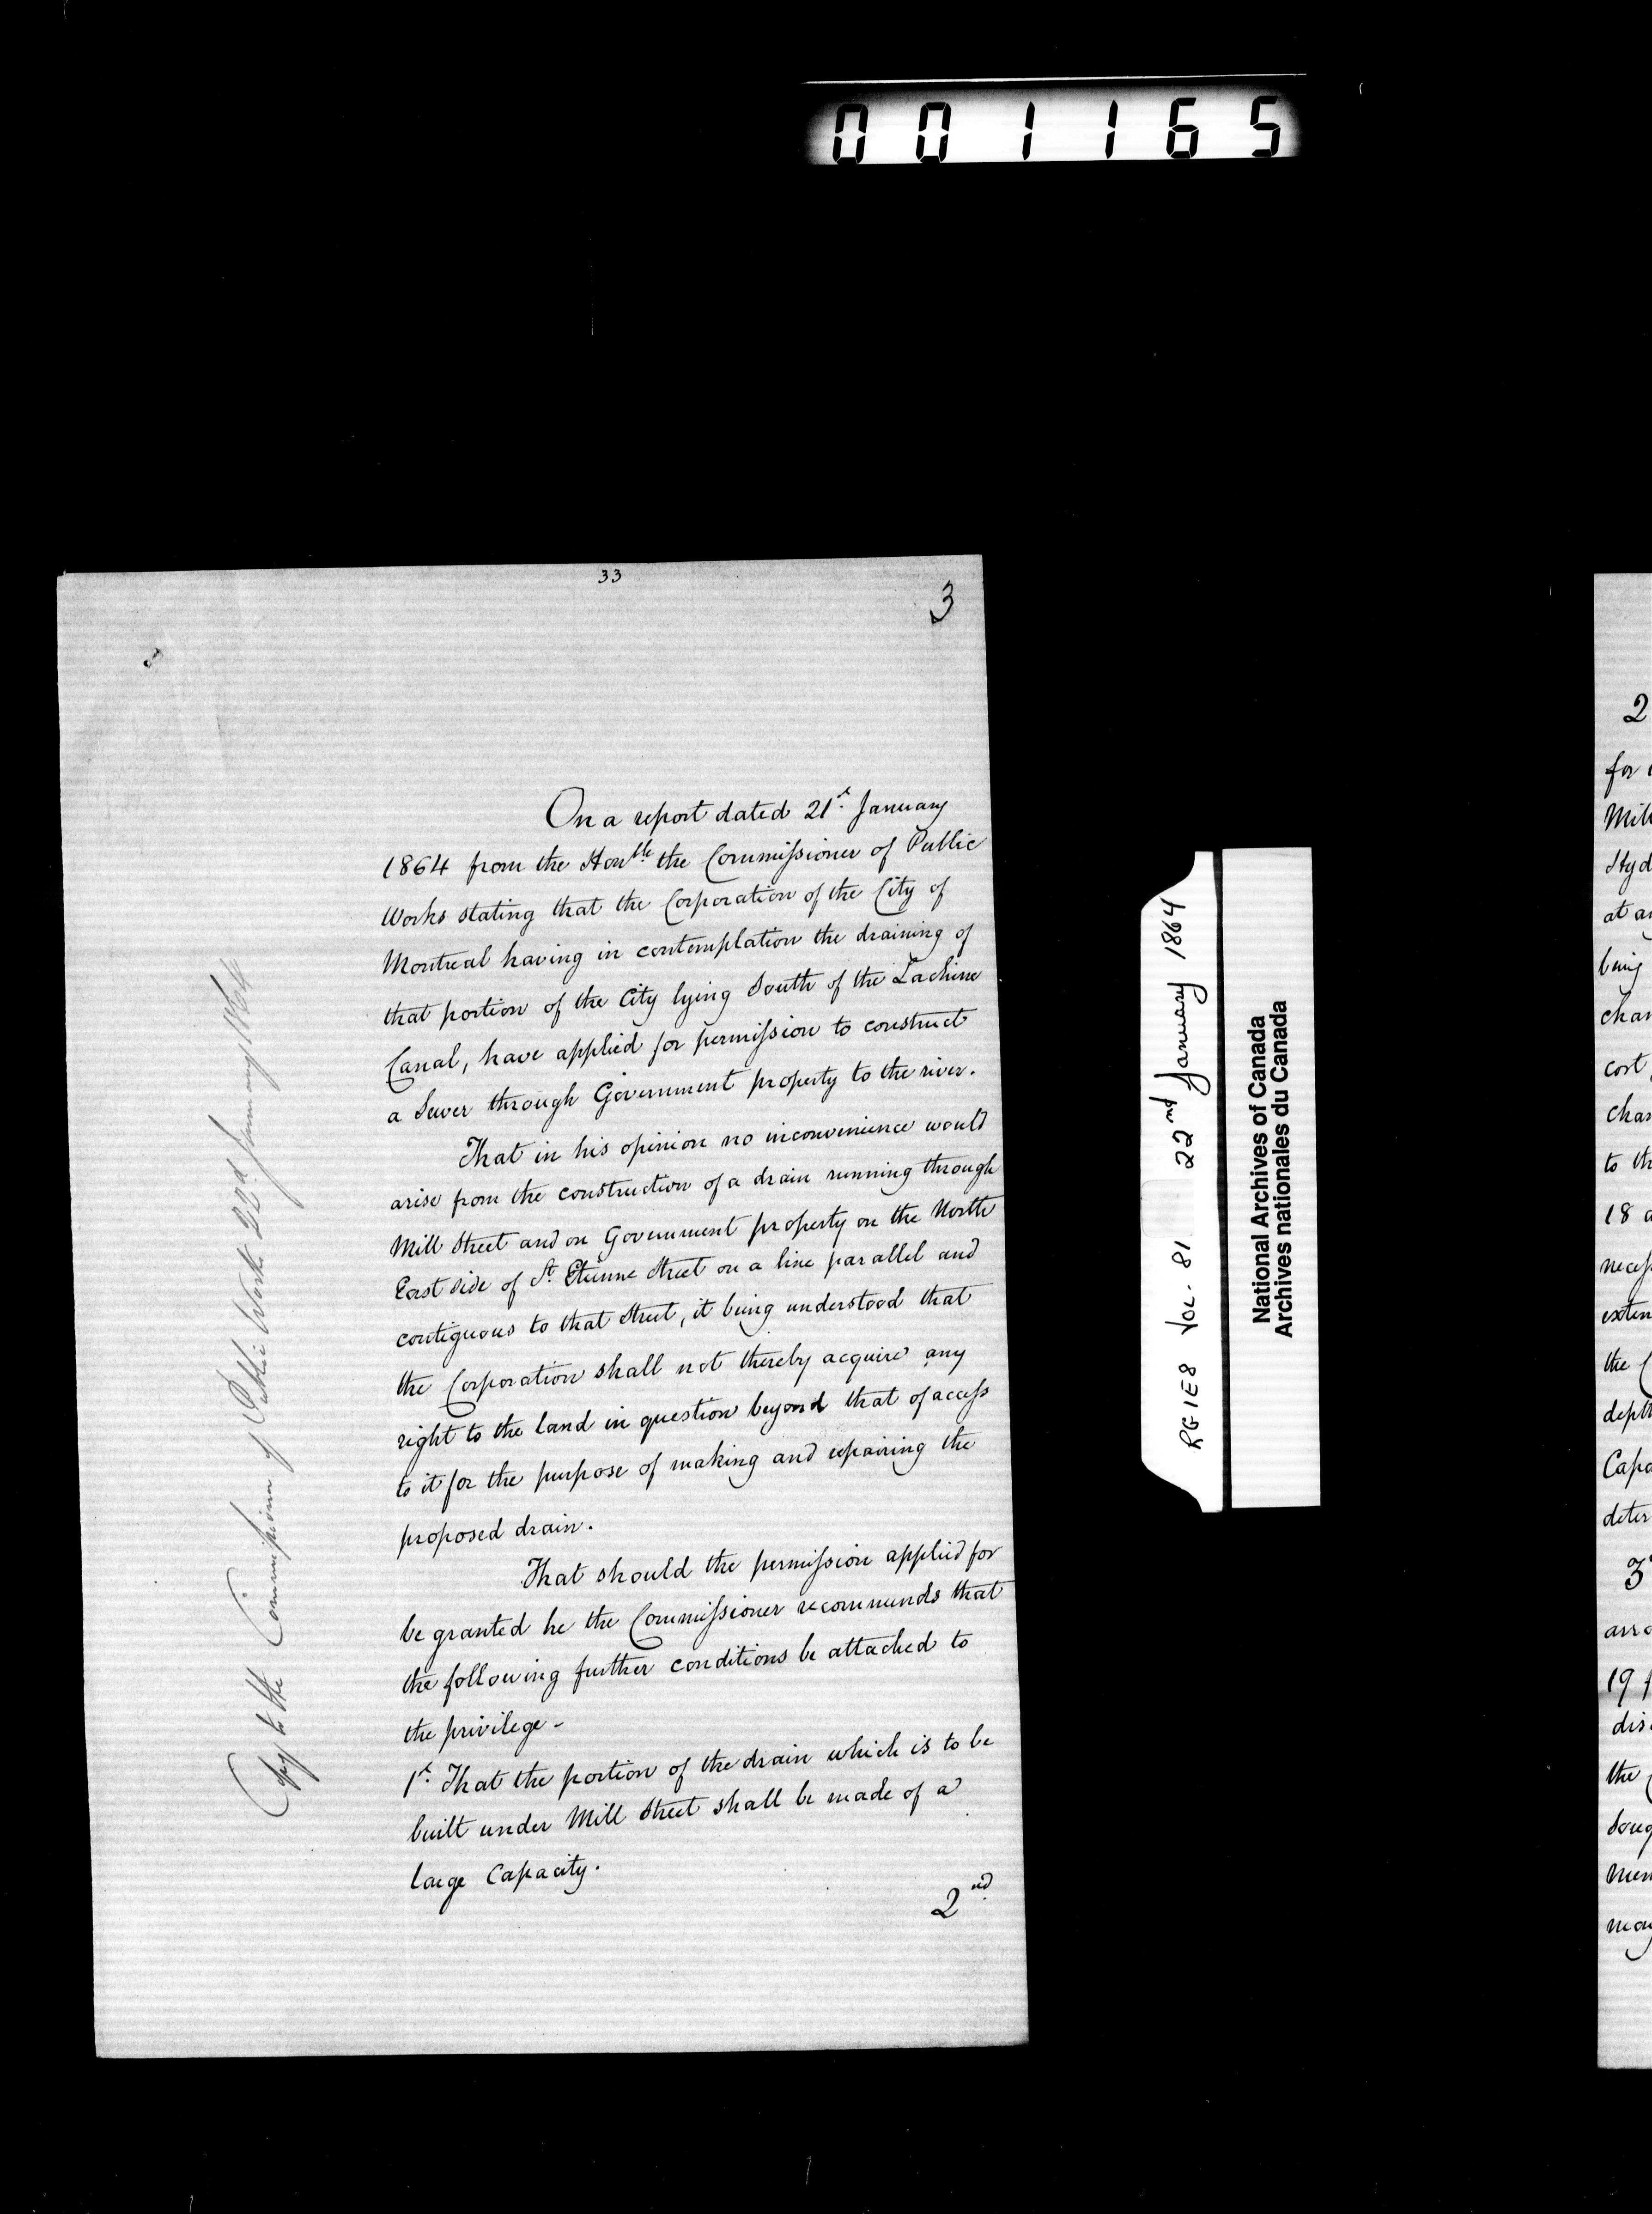 001165
33
3
On a report dated 21st. January
1864 from the Honble. the Commissioner of Public
Works stating that the Corporation of the City of
Montreal having in contemplation the draining of
that portion of the City lying South of the Lachine
Canal, have applied for permission to construct
a Sewer through Government property to the river.
That in his opinion no inconvenience would
arise from the construction of a drain running through
Mill Street and on Government property on the North
East side of St. Etienne Street on a line parallel and
contiguous to that Street, it being understood that
the Corporation shall not thereby acquire any
right to the land in question beyond that of access
to it for the purpose of making and repairing the
proposed drain.
That should the permission applied for
be granted he the Commissioner recommends that
the following further conditions be attached to
the privilege -
1st. That the portion of the drain which is to be
built under Mill Street shall be made of a
large Capacity.
2nd.
Copy to the Commissioner of Public Works 22d. January 1864
RG1E8 Vol. 81 22nd January 1864
National Archives of Canada
Archives nationales du Canada
2
for
Mill
Hyd
at
being
chan
cost
chan
to th
18
necess
exten
the
dept
Capa
deter
3
arra
19
dis
the
soug
mem
may